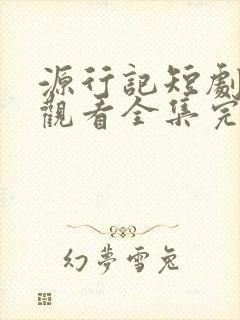 源行記短劇
觀看全集完
幻夢雪兔